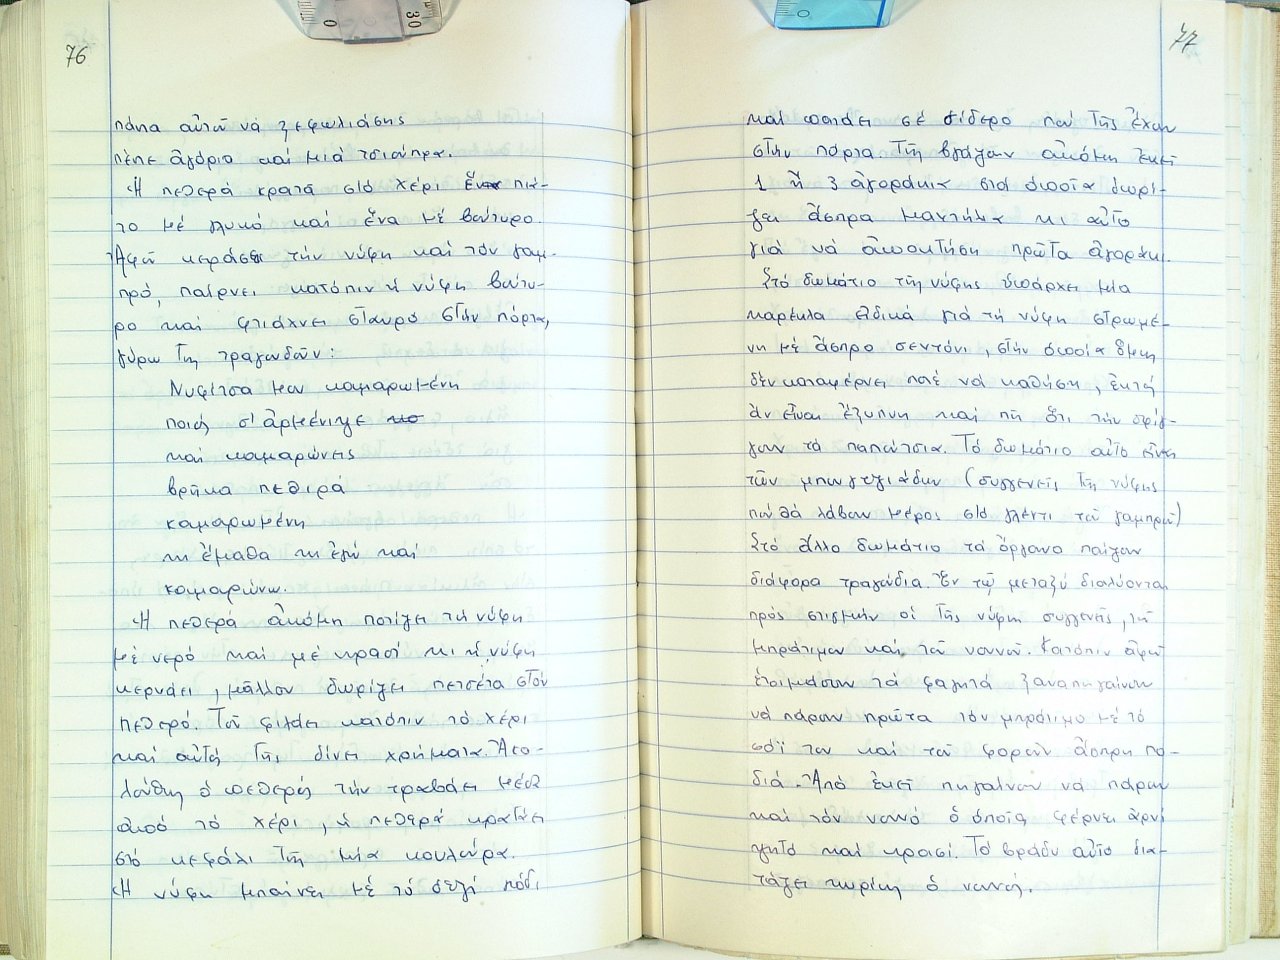 76
πάνω αὐτοῦ νὰ ξεφωλιάσης
πέντε ἀγόρια καὶ μιὰ τσιούπρα.
Ἡ πεθερά κρατᾶ στό χέρι ἕνα πιά-
το μέ γλυκό καί ἕνα μέ βούτυρο.
Ἀφοῦ κεράσει τήν νύφη καί τόν γαμ-
πρό, παίρνει κατόπιν ἡ νύφη βούτυ-
ρο καί φτιάχνει σταυρό στήν πόρτα,
γύρω τῆς τραγουδοῦν:
Νυφίτσα μου καμαρωμένη
ποιός σ' ἀρμένιγε
καί καμαρώνεις
βρῆκα πεθερά
καμαρωμένη
κι ἔμαθα κι ἐγώ καί
καμαρώνω.
Ἡ πεθερά ἀκόμη ποτίζει τή νύφη
μέ νερό καί μέ κρασί κι ἡ νύφη
κερνάει, μᾶλλον δωρίζει πετσέτα στόν
πεθερό. Τοῦ φιλάει κατόπιν τό χέρι
καί αὐτός τῆς δίνει χρήματα. Ἀκο-
λούθως ὁ πεθερός τήν τραβάει μέσα
ἀπό τό χέρι, ἡ πεθερά κρατάει
στό κεφάλι τῆς μία κουλούρα.
Ἡ νύφη μπαίνει μέ τό δεξί πόδι
77
καί πατάει σέ σίδερο πού τῆς ἔχουν
στήν πόρτα. Τῆς βγάζουν ἀκόμη ἐκεῖ
1 ἤ 3 ἀγοράκια στά ὁποῖα δωρί-
ζει ἄσπρα μαντήλια κι αὐτό
γιά νά ἀποκτήση πρῶτα ἀγοράκι.
Στό δωμάτιο τῆς νύφης ὑπάρχει μία
καρέκλα εἰδικά γιά τή νύφη στρωμέ-
νη μέ ἄσπρο σεντόνι, στήν ὁποία ὅμως
δέν καταφέρνει ποτέ νά καθήση, ἐκτός
ἄν εἶναι ἔξυπνη καί πῆ ὅτι τήν σφίγ-
γουν τά παπούτσια. Τό δωμάτιο αὐτό εἶναι
τῶν μπουγυγιάδων (συγγενεῖς τῆς νύφης
πού θά λάβουν μέρος στό γλέντι τοῦ γαμπροῦ)
Στό ἄλλο δωμάτιο τά ὄργανα παίζουν
διάφορα τραγούδια. Ἐν τῷ μεταξύ διαλύονται
πρός στιγμήν οἱ τῆς νύφης συγγενεῖς, τοῦ
μπράτιμου καί τοῦ νουνοῦ. Κατόπιν ἀφοῦ
ἑτοιμάσουν τά φαγητά ξαναπηγαίνουν
νά πάρουν πρῶτα τόν μπράτιμο μέ τό
σόϊ του καί τοῦ φοροῦν ἄσπρη πο-
διά. Ἀπό ἐκεῖ πηγαίνουν νά πάρουν
καί τόν νουνό ὁ ὁποῖος φέρνει ἀρνί
ψητό καί κρασί. Τό βράδυ αὐτό δια-
τάζει κυρίως ὁ νουνός.